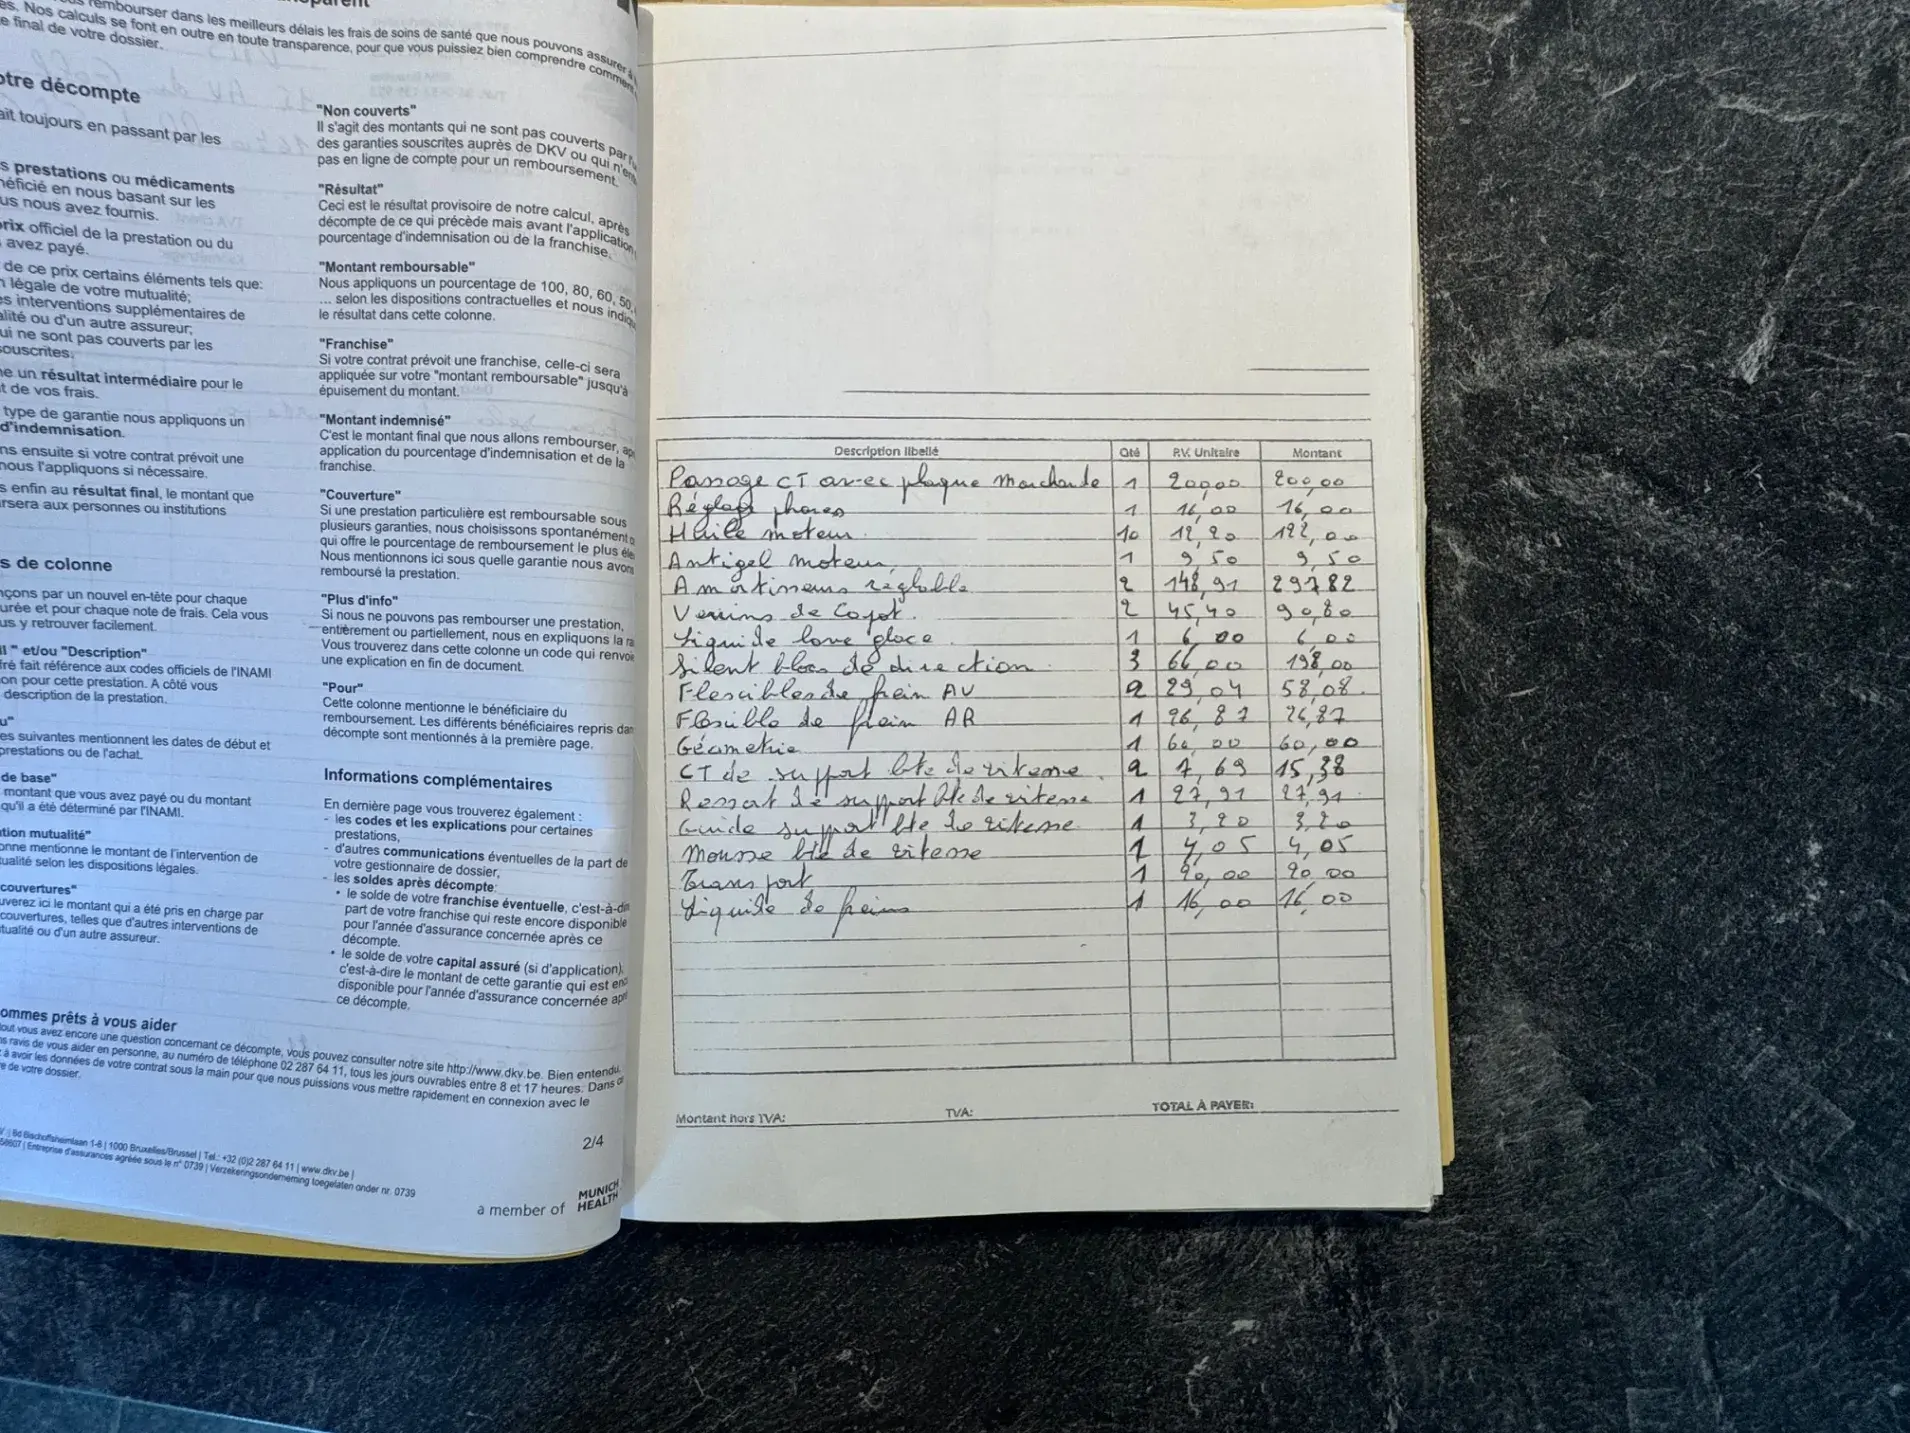 transparent
rembourser dans les meilleurs délais les frais de soins de santé que nous pouvons assurer à
es. Nos calculs se font en outre en toute transparence, pour que vous puissiez bien comprendre comment
e final de votre dossier.
otre décompte
ait toujours en passant par les
s prestations ou médicaments
néficié en nous basant sur les
us nous avez fournis.
prix officiel de la prestation ou du
avez payé.
de ce prix certains éléments tels que:
n légale de votre mutualité;
es interventions supplémentaires de
alité ou d'un autre assureur;
ui ne sont pas couverts par les
souscrites.
ne un résultat intermédiaire pour le
t de vos frais.
type de garantie nous appliquons un
d'indemnisation.
ns ensuite si votre contrat prévoit une
nous l'appliquons si nécessaire.
s enfin au résultat final, le montant que
rsera aux personnes ou institutions
s de colonne
nçons par un nouvel en-tête pour chaque
urée et pour chaque note de frais. Cela vous
us y retrouver facilement.
il " et/ou "Description"
fré fait référence aux codes officiels de l'INAMI
on pour cette prestation. A côté vous
description de la prestation.
u"
es suivantes mentionnent les dates de début et
prestations ou de l'achat.
de base"
montant que vous avez payé ou du montant
qu'il a été déterminé par l'INAMI.
ntion mutualité"
onne mentionne le montant de l'intervention de
tualité selon les dispositions légales.
couvertures"
uverez ici le montant qui a été pris en charge par
couvertures, telles que d'autres interventions de
tualité ou d'un autre assureur.
"Non couverts"
Il s'agit des montants qui ne sont pas couverts par l'
des garanties souscrites auprès de DKV ou qui n'en
pas en ligne de compte pour un remboursement.
"Résultat"
Ceci est le résultat provisoire de notre calcul, après
décompte de ce qui précède mais avant l'application
pourcentage d'indemnisation ou de la franchise.
"Montant remboursable"
Nous appliquons un pourcentage de 100, 80, 60, 50,
... selon les dispositions contractuelles et nous indiqu
le résultat dans cette colonne.
"Franchise"
Si votre contrat prévoit une franchise, celle-ci sera
appliquée sur votre "montant remboursable" jusqu'à
épuisement du montant.
"Montant indemnisé"
C'est le montant final que nous allons rembourser, ap
application du pourcentage d'indemnisation et de la
franchise.
"Couverture"
Si une prestation particulière est remboursable sous
plusieurs garanties, nous choisissons spontanément
qui offre le pourcentage de remboursement le plus éle
Nous mentionnons ici sous quelle garantie nous avons
remboursé la prestation.
"Plus d'info"
Si nous ne pouvons pas rembourser une prestation,
entièrement ou partiellement, nous en expliquons la ra
Vous trouverez dans cette colonne un code qui renvoi
une explication en fin de document.
"Pour"
Cette colonne mentionne le bénéficiaire du
remboursement. Les différents bénéficiaires repris dan
décompte sont mentionnés à la première page.
Informations complémentaires
En dernière page vous trouverez également :
- les codes et les explications pour certaines
prestations,
- d'autres communications éventuelles de la part de
votre gestionnaire de dossier,
- les soldes après décompte:
• le solde de votre franchise éventuelle, c'est-à-dir
part de votre franchise qui reste encore disponible
pour l'année d'assurance concernée après ce
décompte.
• le solde de votre capital assuré (si d'application),
c'est-à-dire le montant de cette garantie qui est enc
disponible pour l'année d'assurance concernée apr
ce décompte.
ommes prêts à vous aider
tout vous avez encore une question concernant ce décompte, vous pouvez consulter notre site http://www.dkv.be. Bien entendu,
s ravis de vous aider en personne, au numéro de téléphone 02 287 64 11, tous les jours ouvrables entre 8 et 17 heures. Dans c
à avoir les données de votre contrat sous la main pour que nous puissions vous mettre rapidement en connexion avec le
e de votre dossier.
2/4
Bd Bischoffsheimlaan 1-8 | 1000 Bruxelles/Brussel | Tel.: +32 (0)2 287 64 11 | www.dkv.be |
58607 | Entreprise d'assurances agréée sous le n° 0739 | Verzekeringsonderneming toegelaten onder nr. 0739
a member of MUNICH HEALTH
Description libellé Qté P.V. Unitaire Montant
Passage CT avec plaque Marchande 1 200,00 200,00
Réglage phares 1 16,00 16,00
Huile moteur 10 12,20 122,00
Antigel moteur 1 9,50 9,50
Amortisseurs réglable 2 148,91 297,82
Verins de Capot. 2 45,40 90,80
Liquide lave glace 1 6,00 6,00
Silent blocs de direction 3 66,00 198,00
Flexibles de frein AV 2 29,04 58,08
Flexible de frein AR 1 26,87 26,87
Géometrie 1 60,00 60,00
CT de support bte de vitesse 2 7,69 15,38
Ressort de support bte de vitesse 1 27,91 27,91
Guide support bte de vitesse 1 3,20 3,20
Mousse bte de vitesse 1 4,05 4,05
Transport 1 20,00 20,00
Liquide de freins 1 16,00 16,00
Montant hors TVA: TVA: TOTAL À PAYER: